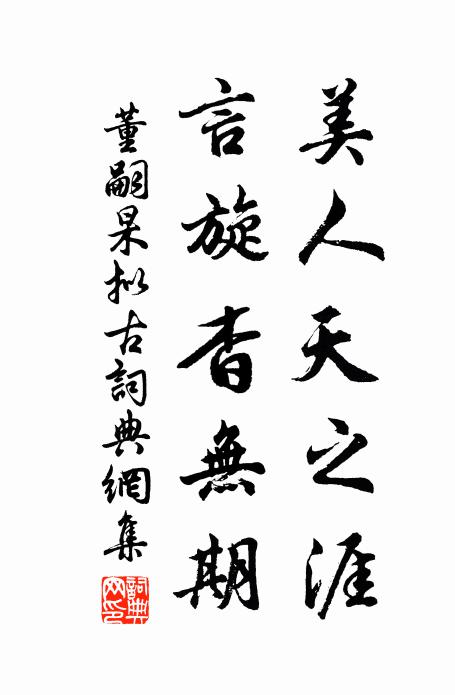 美人天之涯
言旋杳無期
董嗣杲拟古詞典網集
詞典網印